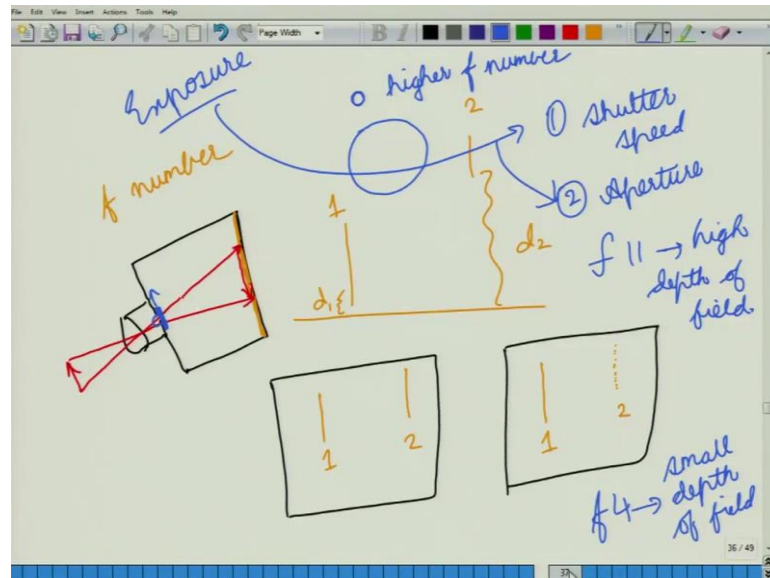 File Edit View Insert Actions Tools Help
Page Width
Exposure
higher f number
f number
1
2
d1
d2
① shutter
speed
② Aperture
f 11 → high
depth of
field
1
2
1
2
f4 → small
depth
of field
36 / 49
37